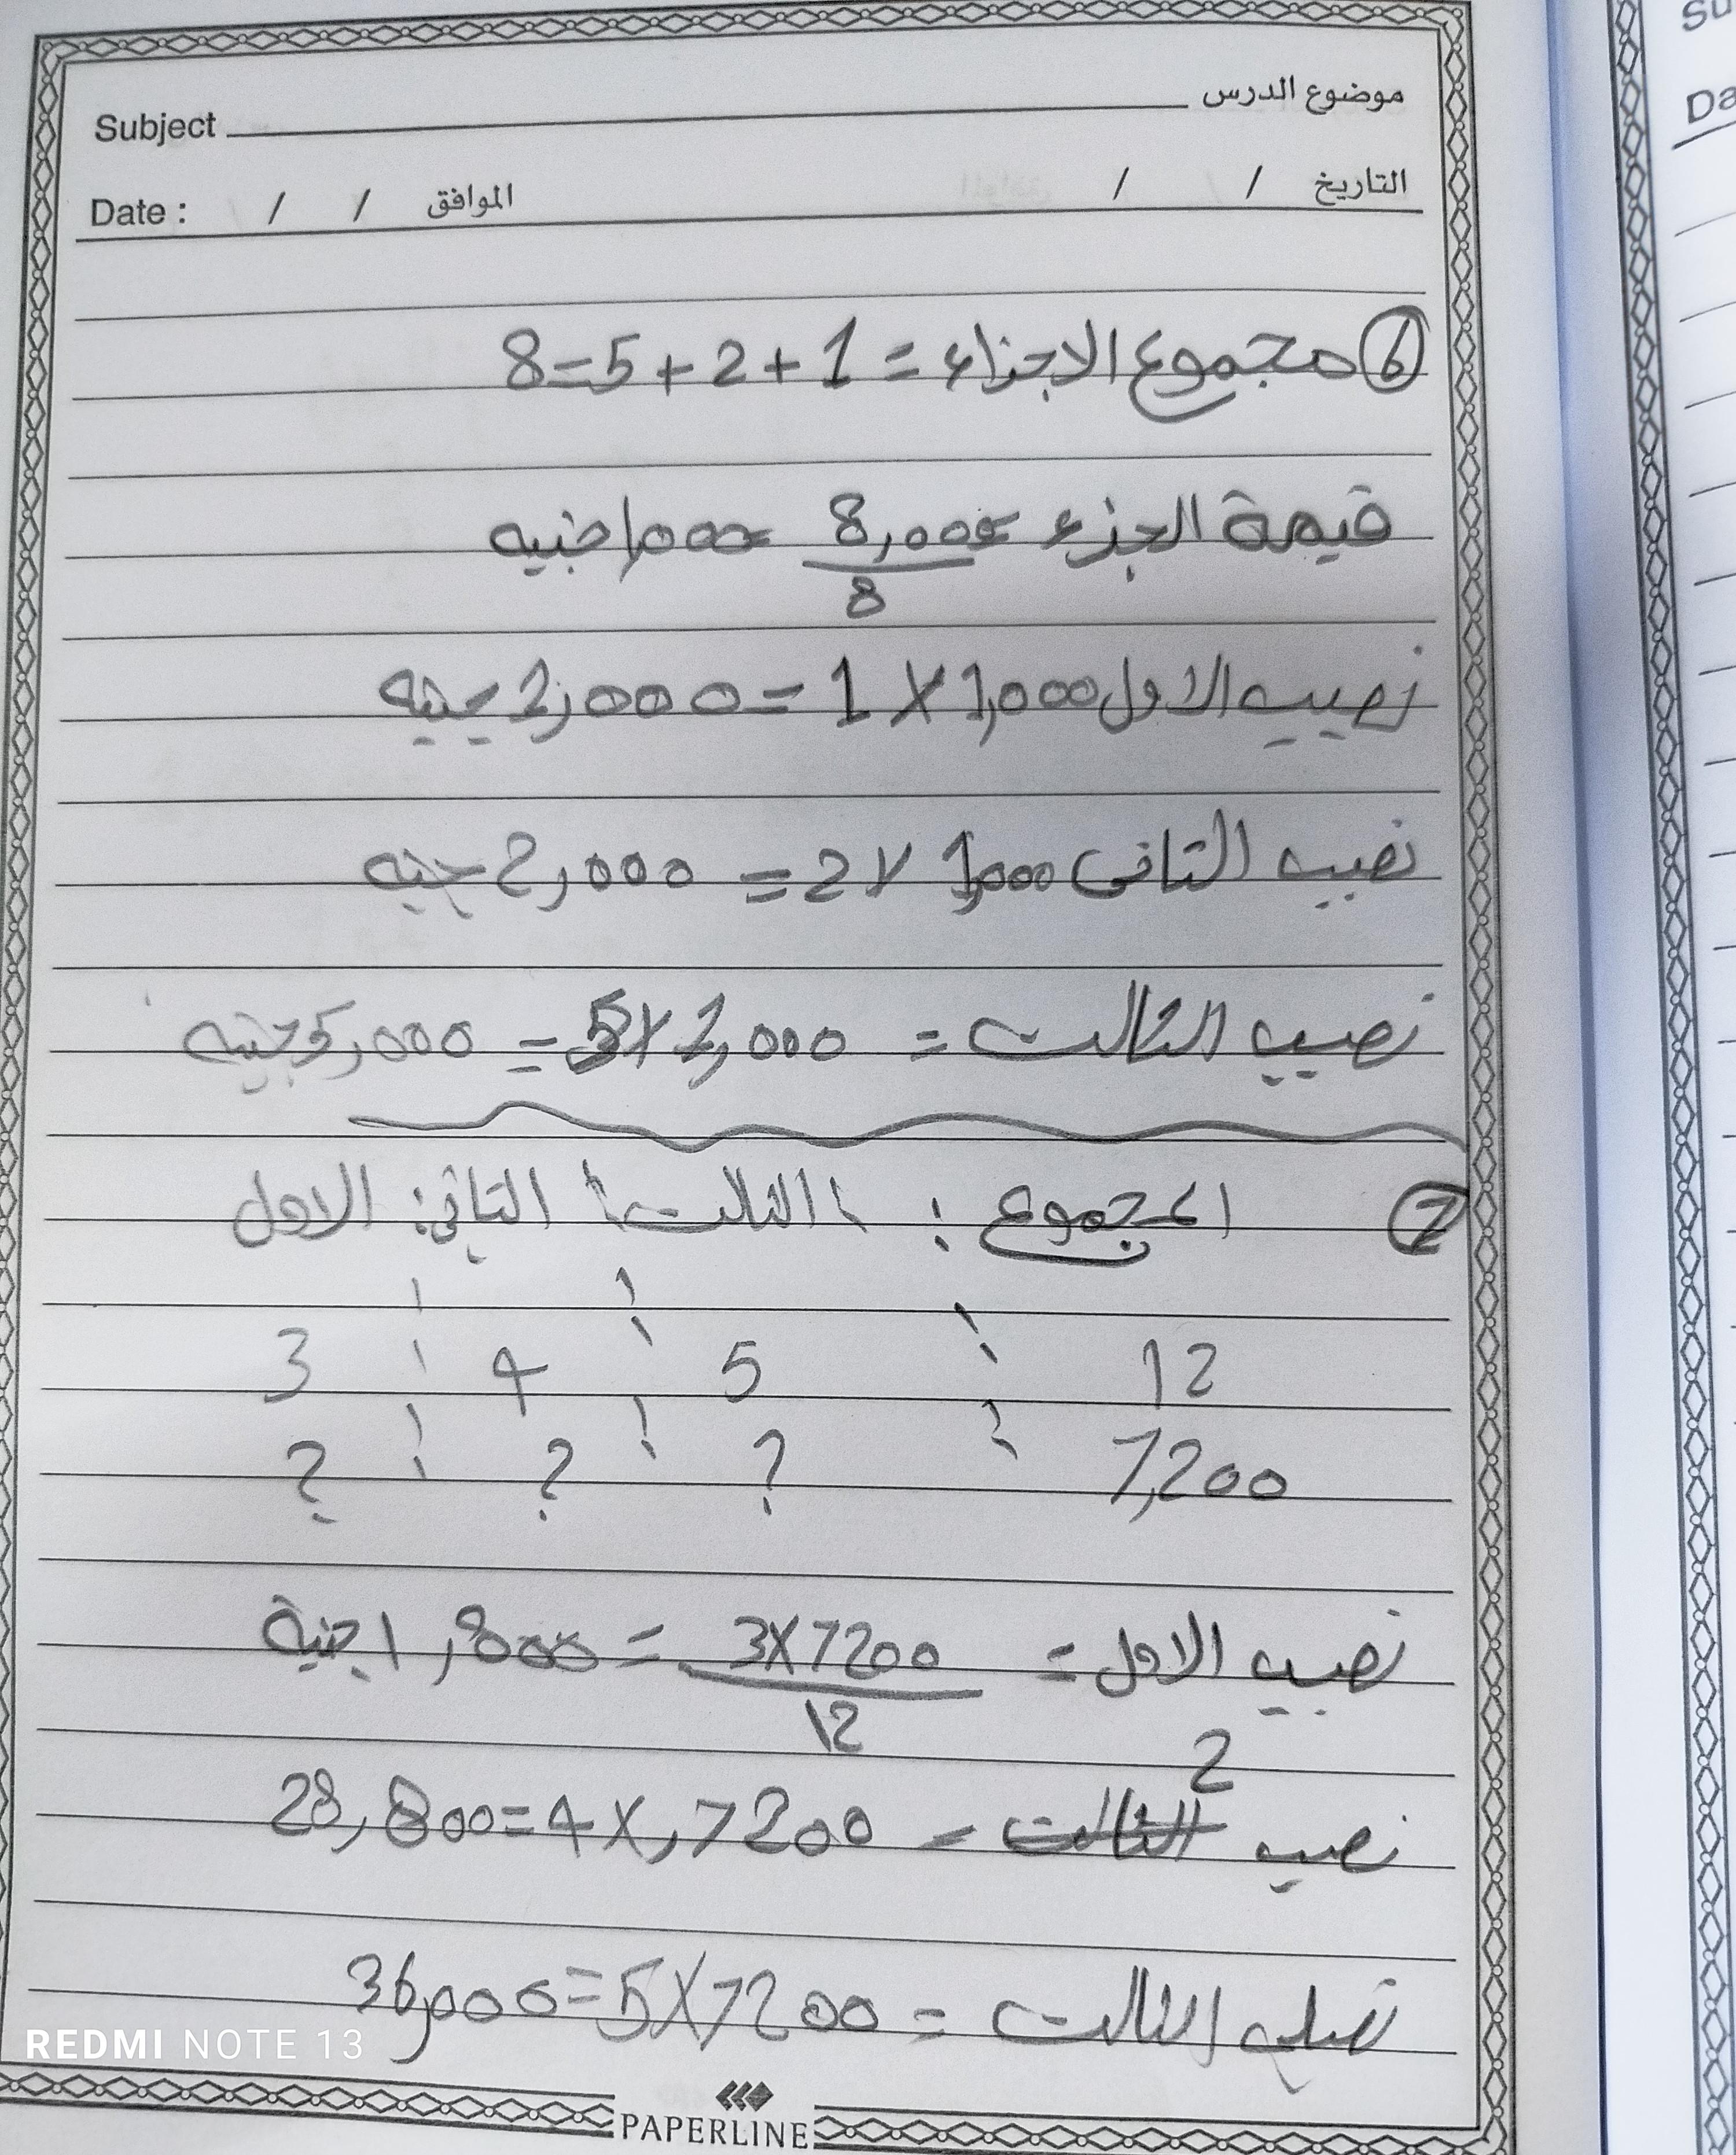 موضوع الدرس
Subject
التاريخ / / الموافق / / Date :
6 مجموع الاجزاء = 1 + 2 + 5 = 8
قيمة الجزء = 8,000 / 8 = 1000 جنيه
نصيب الاول 1,000 X 1 = 1,000 جنيه
نصيب التانى 1,000 X 2 = 2,000 جنيه
نصيب الثالث = 1,000 X 5 = 5,000 جنيه
7 المجموع : الثالث : التانى : الاول
12 : 5 : 4 : 3
7,200 : ? : ? : ?
نصيب الاول = 3X7200 / 12 = 1,800 جنية
2
نصيب الثالث = 4X,7200 = 28,800
نصيب الثالث = 5X7200 = 36,000
REDMI NOTE 13
PAPERLINE
Su
Da